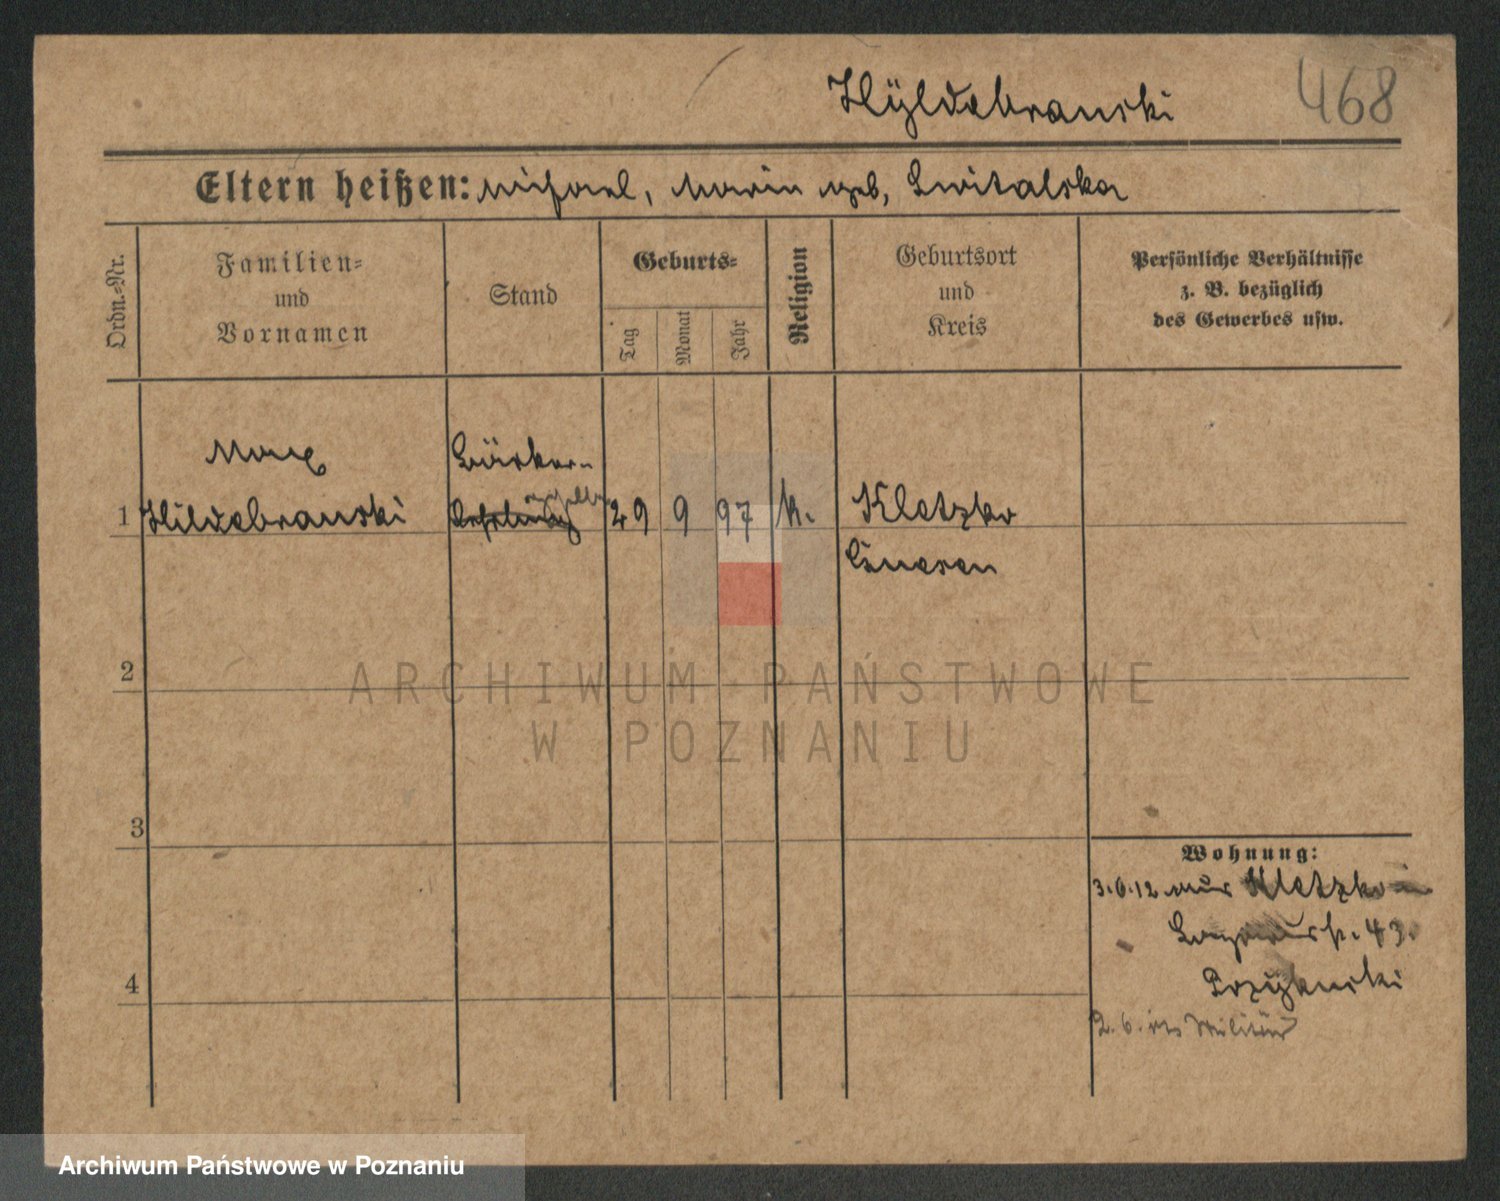 Hÿldebranski 468
Eltern heißen: Michael, Maria geb. Switalska
Ordn.-Nr.
Familien-
und
Vornamen
Stand
Geburts-
Tag
Monat
Jahr
Religion
Geburtsort
und
Kreis
Persönliche Verhältnisse
z. B. bezüglich
des Gewerbes usw.
Max
Bäcker-
geselle
1 Hildebranski Lehrling 29 9 97 k. Kletzko
Gnesen
2
3
4
Wohnung:
3.6.12 aus Kletzko
43.
2.6. ins Militär
ARCHIWUM PAŃSTWOWE
W POZNANIU
Archiwum Państwowe w Poznaniu